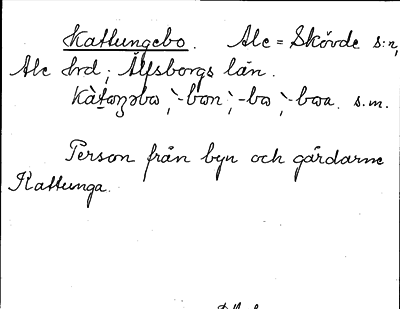 Kattungebo. Ale = Skövde s:n,
Ale hrd; Älfsborgs län.
s.m.
Person från byn och gårdarne
Kattunga.